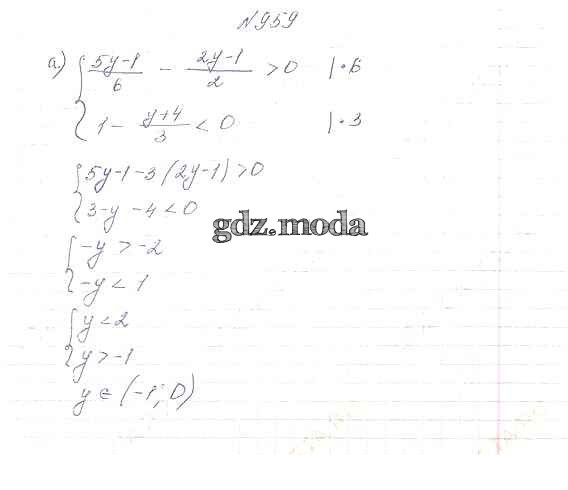 N959
а) { (5y-1)/6 - (2y-1)/2 > 0 |·6
1 - (y+4)/3 < 0 |·3
{ 5y-1-3(2y-1)>0
3-y-4<0
gdz.moda
{ -y > -2
-y < 1
{ y < 2
y > -1
y ∈ (-1; 0)